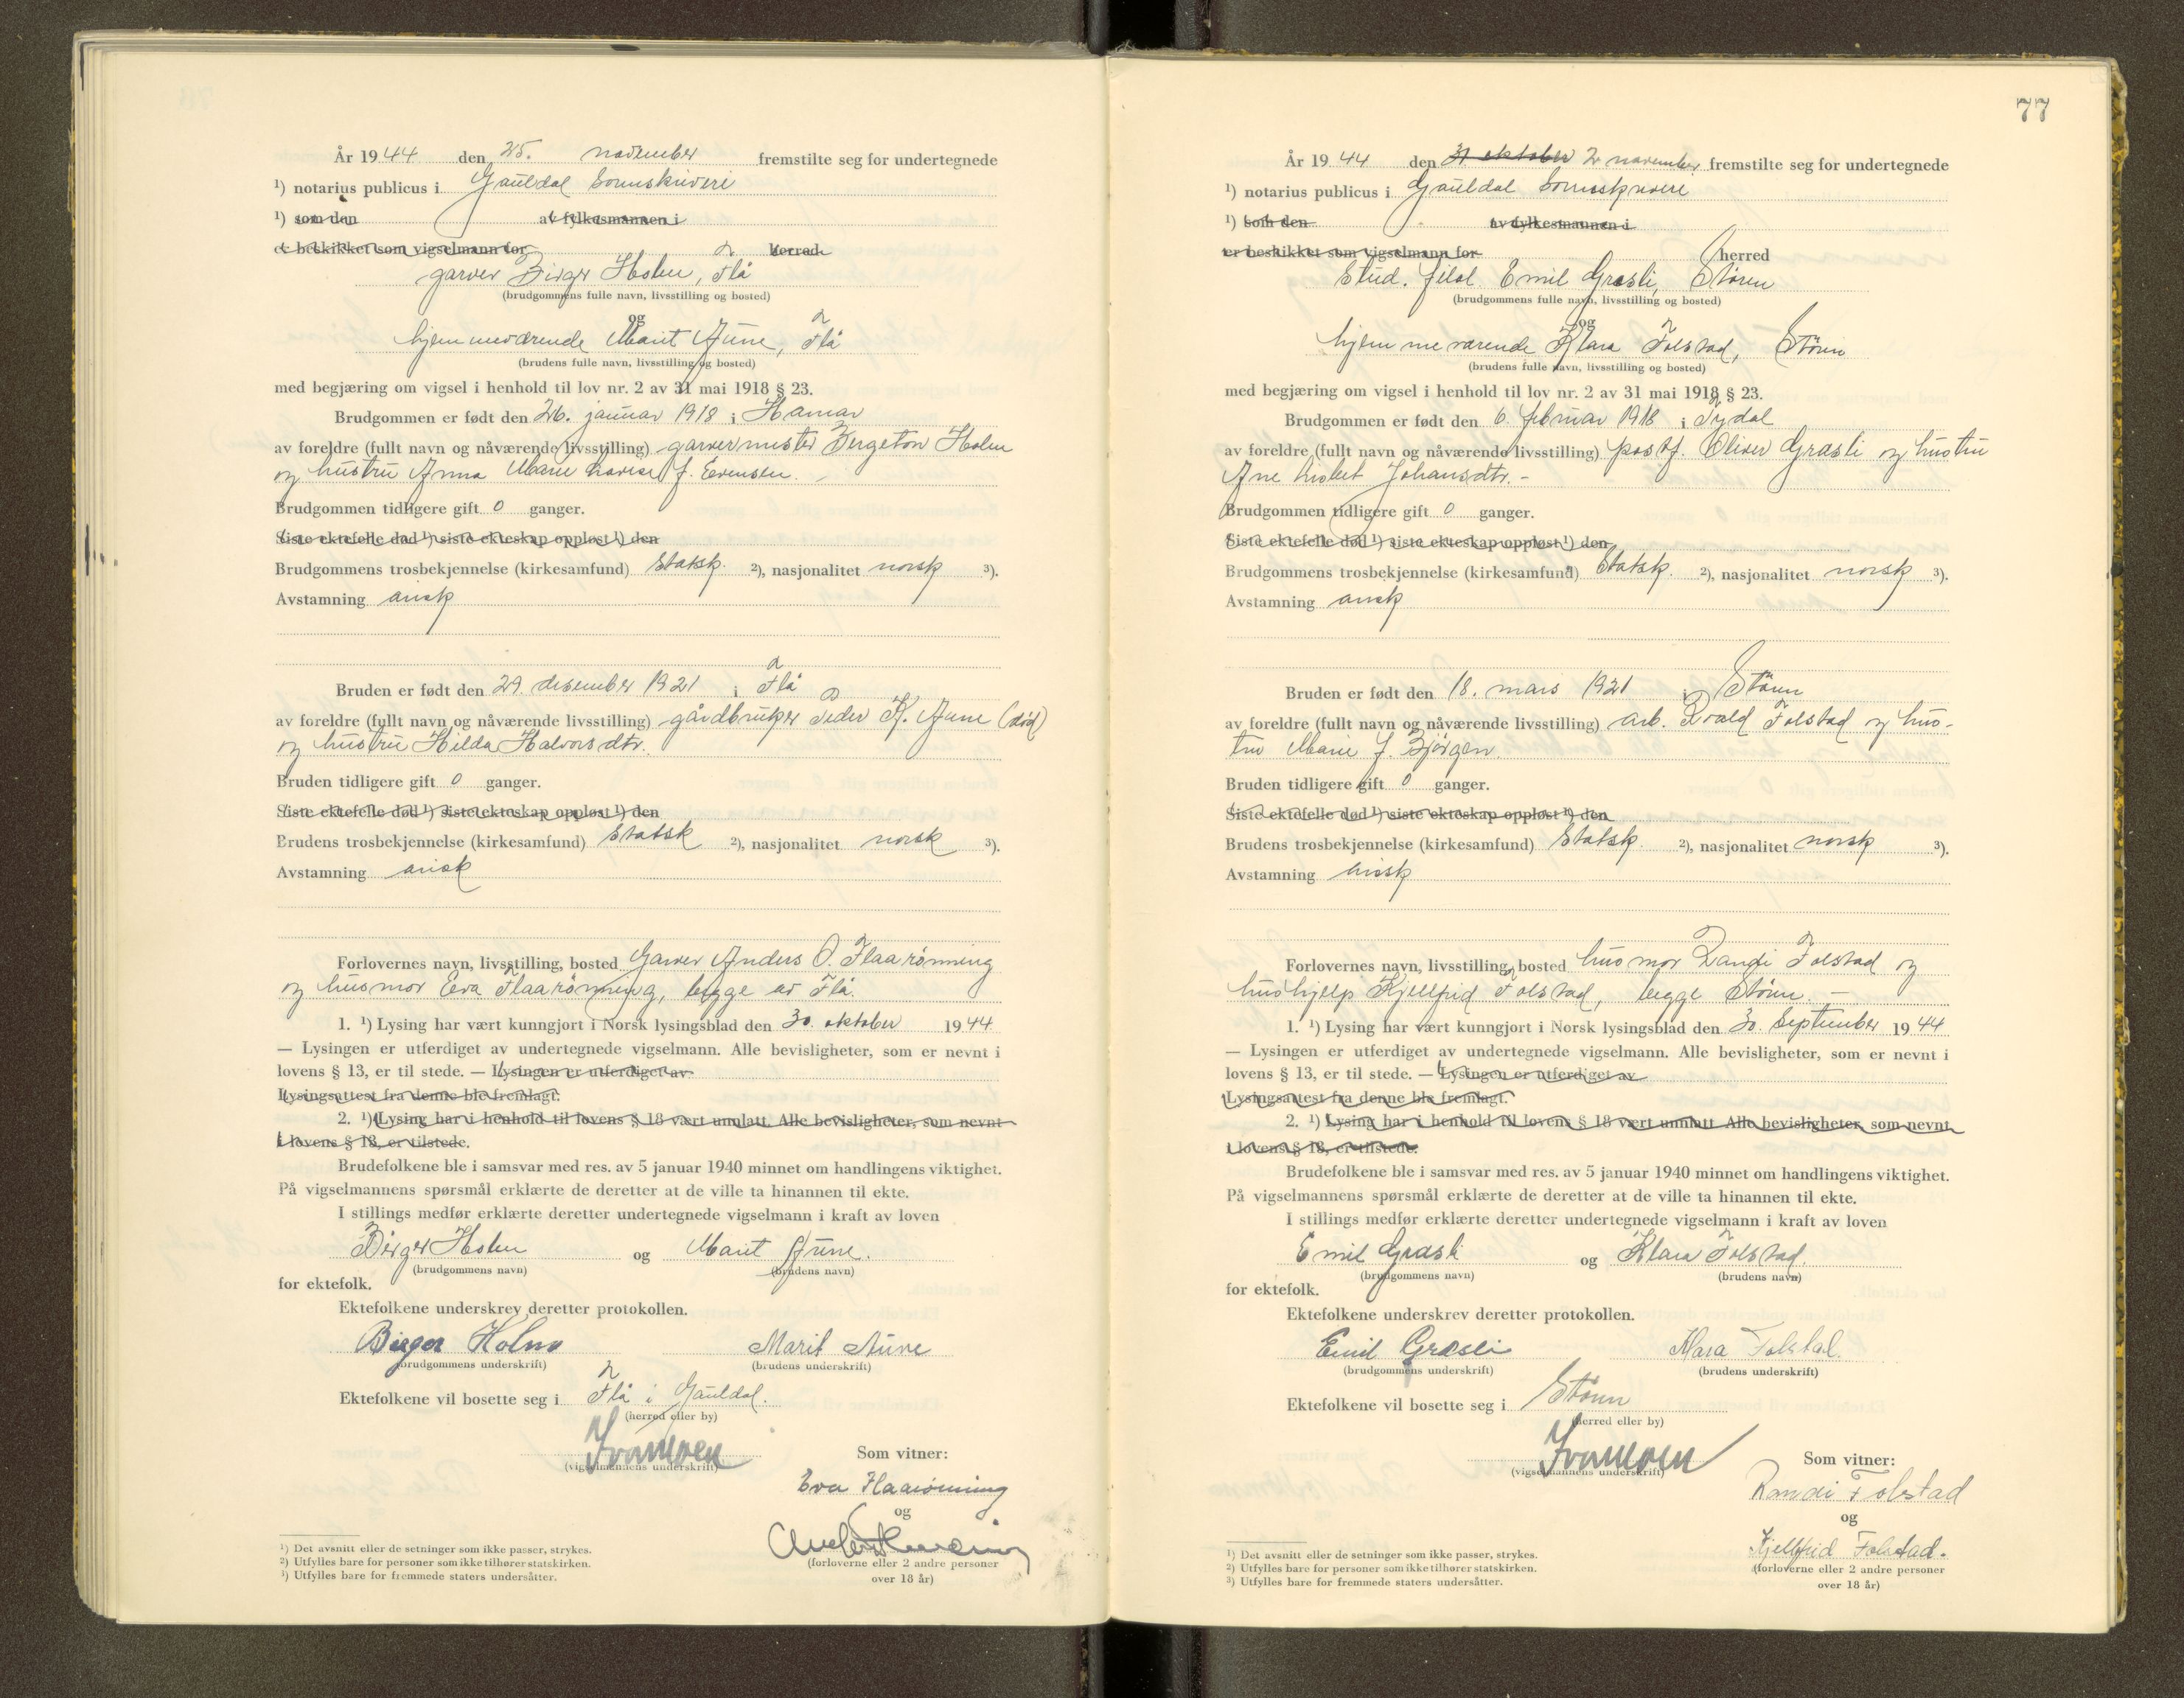 År 1944 den 25. november fremstilte seg for undertegnede
¹) notarius publicus i Gauldal Sorenskriveri
¹) som den av fylkesmannen i
er beskikket som vigselmann for herred
garver Birger Holm, Flå
(brudgommens fulle navn, livsstilling og bosted)
og
hjemmeværende Marit Aune, Flå
(brudens fulle navn, livsstilling og bosted)
med begjæring om vigsel i henhold til lov nr. 2 av 31 mai 1918 § 23.
Brudgommen er født den 26. januar 1918 i Hamar
av foreldre (fullt navn og nåværende livsstilling) garvermester Bergeton Holm
og hustru Anna Marie Lovise f. Evensen.
Brudgommen tidligere gift 0 ganger.
Siste ektefelle død ¹) siste ekteskap oppløst ¹) den
Brudgommens trosbekjennelse (kirkesamfund) Statsk. ²), nasjonalitet norsk ³).
Avstamning arisk
Bruden er født den 29. desember 1921 i Flå
av foreldre (fullt navn og nåværende livsstilling) gårdbruker Peder K. Aune (død)
og hustru Hilda Halvorsdtr.
Bruden tidligere gift 0 ganger.
Siste ektefelle død ¹) siste ekteskap oppløst ¹) den
Brudens trosbekjennelse (kirkesamfund) Statsk ²), nasjonalitet norsk ³).
Avstamning arisk
Forlovernes navn, livsstilling, bosted Garver Anders O. Flaarønning
og husmor Eva Flaarønning, begge av Flå.
1. ¹) Lysing har vært kunngjort i Norsk lysingsblad den 30. oktober 1944
— Lysingen er utferdiget av undertegnede vigselmann. Alle bevisligheter, som er nevnt i
lovens § 13, er til stede. — Lysingen er utferdiget av
Lysingsattest fra denne ble fremlagt.
2. ¹) Lysing har i henhold til lovens § 18 vært unnlatt. Alle bevisligheter, som nevnt
i lovens § 18, er tilstede.
Brudefolkene ble i samsvar med res. av 5 januar 1940 minnet om handlingens viktighet.
På vigselmannens spørsmål erklærte de deretter at de ville ta hinannen til ekte.
I stillings medfør erklærte deretter undertegnede vigselmann i kraft av loven
Birger Holm og Marit Aune.
(brudgommens navn) (brudens navn)
for ektefolk.
Ektefolkene underskrev deretter protokollen.
Birger Holm Marit Aune
(brudgommens underskrift) (brudens underskrift)
Ektefolkene vil bosette seg i Flå i Gauldal.
(herred eller by)
(vigselmannens underskrift)
Som vitner:
Eva Flaarønning
og
(forloverne eller 2 andre personer
over 18 år)
¹) Det avsnitt eller de setninger som ikke passer, strykes.
²) Utfylles bare for personer som ikke tilhører statskirken.
³) Utfylles bare for fremmede staters undersåtter.
77
År 1944 den 31 oktober 2 november fremstilte seg for undertegnede
¹) notarius publicus i Gauldal Sorenskriveri
¹) som den av fylkesmannen i
er beskikket som vigselmann for herred
Stud. filol. Emil Græsli, Støren
(brudgommens fulle navn, livsstilling og bosted)
og
hjemmeværende Klara Folstad, Støren
(brudens fulle navn, livsstilling og bosted)
med begjæring om vigsel i henhold til lov nr. 2 av 31 mai 1918 § 23.
Brudgommen er født den 6. februar 1918 i Tydal
av foreldre (fullt navn og nåværende livsstilling) postf. Oliver Græsli og hustru
Ane Lisbet Johansdtr. -
Brudgommen tidligere gift 0 ganger.
Siste ektefelle død ¹) siste ekteskap oppløst ¹) den
Brudgommens trosbekjennelse (kirkesamfund) Statsk. ²), nasjonalitet norsk ³).
Avstamning arisk
Bruden er født den 18. mars 1921 i Støren
av foreldre (fullt navn og nåværende livsstilling) arb. Roald Folstad og hus-
tru Marie f. Bjørgen.
Bruden tidligere gift 0 ganger.
Siste ektefelle død ¹) siste ekteskap oppløst ¹) den
Brudens trosbekjennelse (kirkesamfund) Statsk. ²), nasjonalitet norsk ³).
Avstamning arisk
Forlovernes navn, livsstilling, bosted husmor Randi Folstad og
hushjelp Kjellfrid Folstad, begge Støren. —
1. ¹) Lysing har vært kunngjort i Norsk lysingsblad den 30. September 1944
— Lysingen er utferdiget av undertegnede vigselmann. Alle bevisligheter, som er nevnt i
lovens § 13, er til stede. — Lysingen er utferdiget av
Lysingsattest fra denne ble fremlagt.
2. ¹) Lysing har i henhold til lovens § 18 vært unnlatt Alle bevisligheter, som nevnt
i lovens § 18, er tilstede.
Brudefolkene ble i samsvar med res. av 5 januar 1940 minnet om handlingens viktighet.
På vigselmannens spørsmål erklærte de deretter at de ville ta hinannen til ekte.
I stillings medfør erklærte deretter undertegnede vigselmann i kraft av loven
Emil Græsli og Klara Folstad.
(brudgommens navn) (brudens navn)
for ektefolk.
Ektefolkene underskrev deretter protokollen.
Emil Græsli Klara Folstad.
(brudgommens underskrift) (brudens underskrift)
Ektefolkene vil bosette seg i Støren
(herred eller by)
(vigselmannens underskrift)
Som vitner:
Randi Folstad
og
Kjellfrid Folstad.
(forloverne eller 2 andre personer
over 18 år)
¹) Det avsnitt eller de setninger som ikke passer, strykes.
²) Utfylles bare for personer som ikke tilhører statskirken.
³) Utfylles bare for fremmede staters undersåtter.